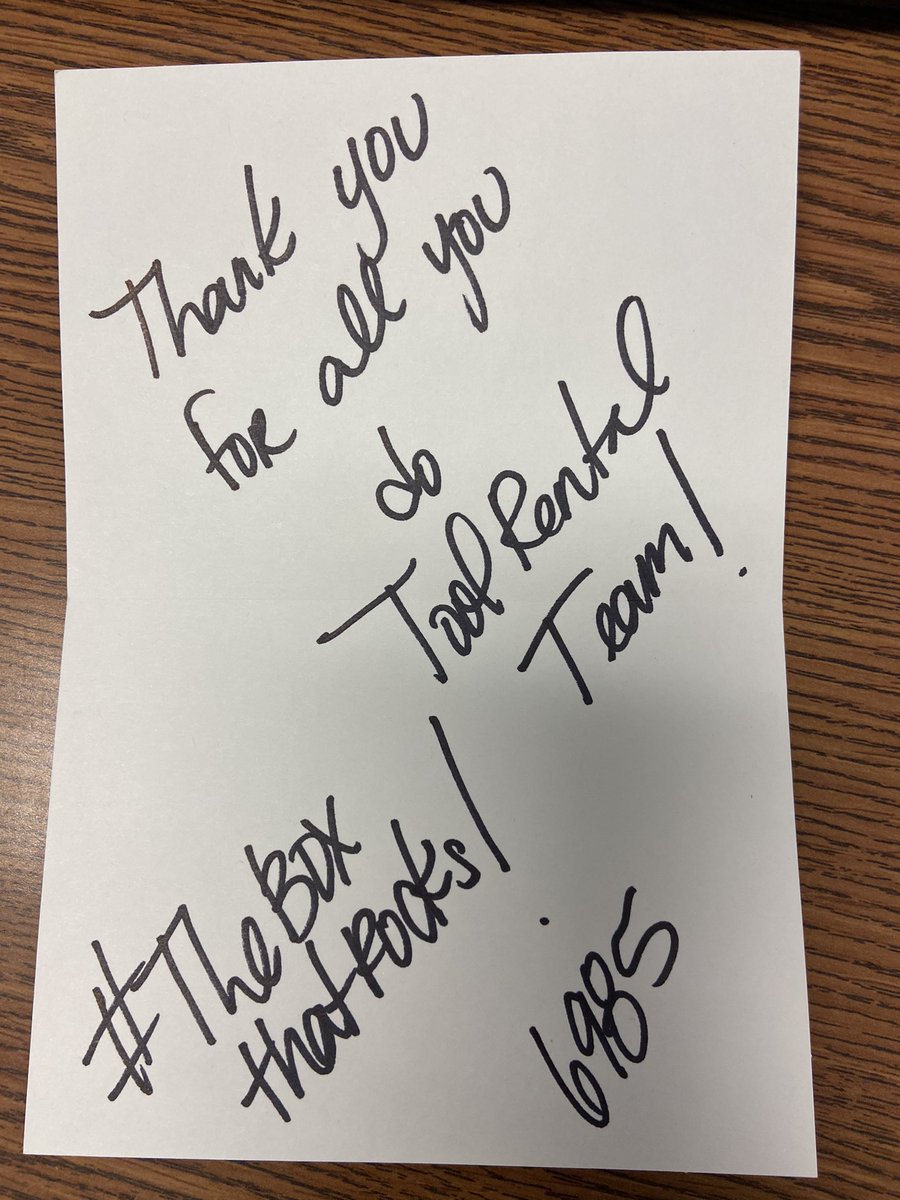 Thank you
for all you
do
Tool Rental
Team!
#The Box
that Rocks!
6985